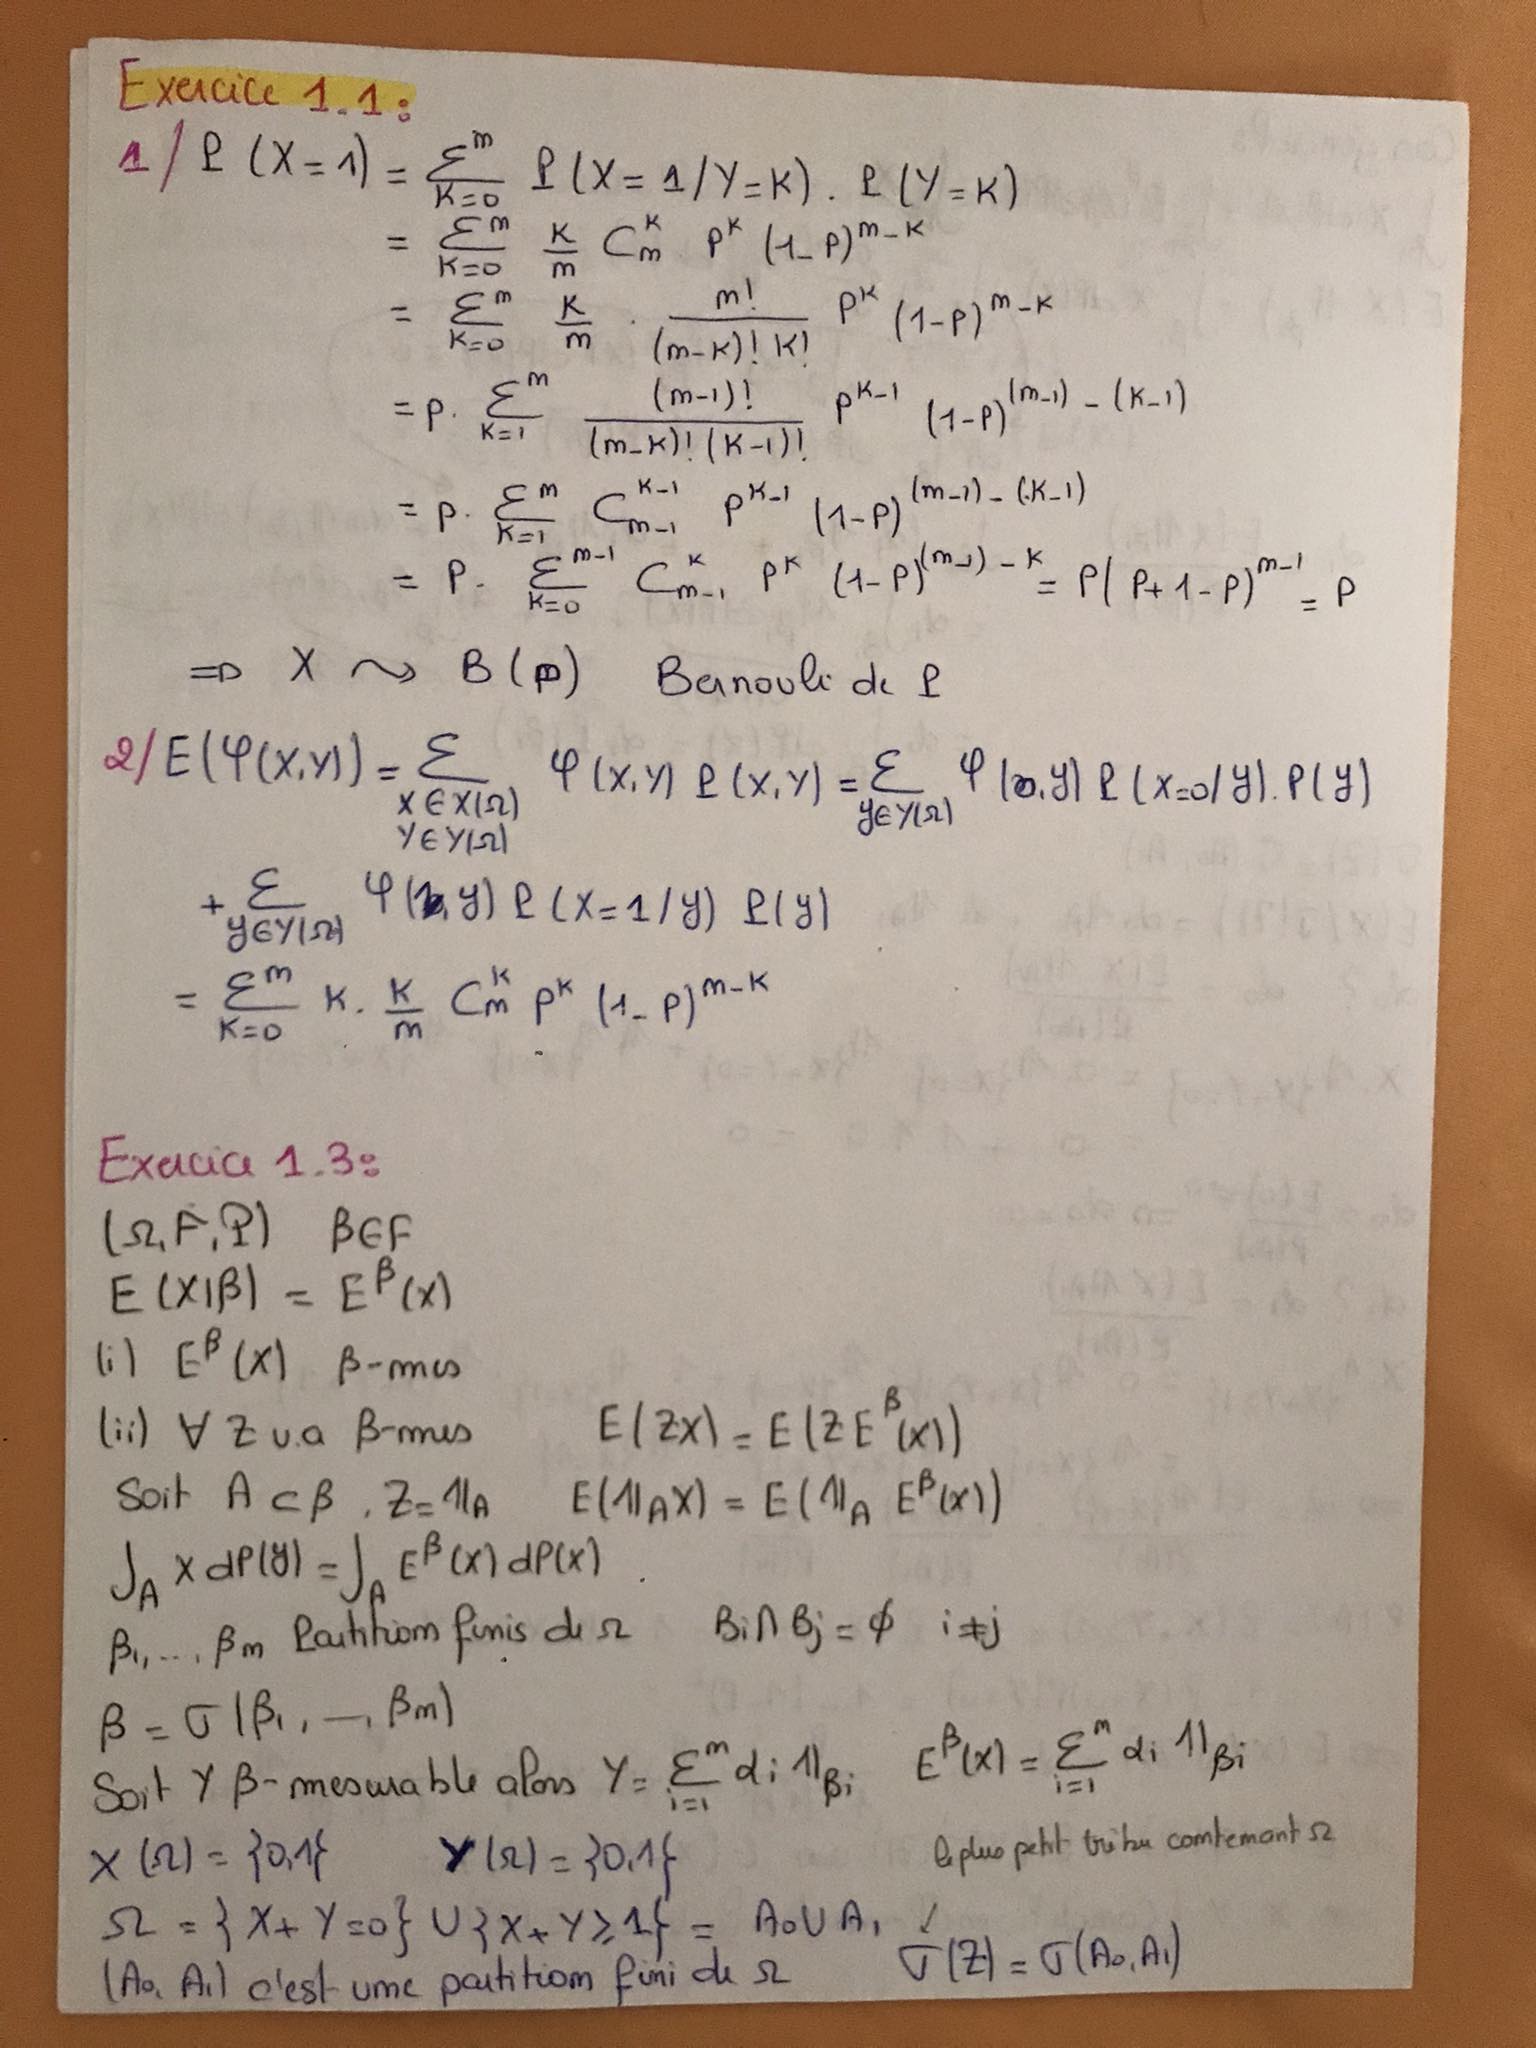 Exercice 1.1:
1/ P(X=1) = Σ_{K=0}^{m} P(X=1/Y=K). P(Y=K)
= Σ_{K=0}^{m} K/m C_m^K P^K (1-P)^{m-K}
= Σ_{K=0}^{m} K/m . m!/((m-K)! K!) P^K (1-P)^{m-K}
= p. Σ_{K=1}^{m} (m-1)!/((m-K)! (K-1)!) P^{K-1} (1-P)^{(m-1)-(K-1)}
= p. Σ_{K=1}^{m} C_{m-1}^{K-1} P^{K-1} (1-P)^{(m-1)-(K-1)}
= P. Σ_{K=0}^{m-1} C_{m-1}^{K} P^K (1-P)^{(m-1)-K} = P(P+1-P)^{m-1} = P
⇒ X ⤳ B(p) Bernouli de P
2/ E(φ(X,Y)) = Σ_{X∈X(Ω) Y∈Y(Ω)} φ(X,Y) P(X,Y) = Σ_{y∈Y(Ω)} φ(0,y) P(X=0/y). P(y)
+ Σ_{y∈Y(Ω)} φ(1,y) P(X=1/y) P(y)
= Σ_{K=0}^{m} K. K/m C_m^K P^K (1-P)^{m-K}
Exercice 1.3:
(Ω,F,P) β∈F
E(X|β) = E^β(X)
(i) E^β(X) β-mes
(ii) ∀ Z v.a β-mes E(ZX) = E(Z E^β(X))
Soit A⊂β, Z=1_A E(1_A X) = E(1_A E^β(X))
∫_A X dP(y) = ∫_A E^β(X) dP(X).
β_1,...,β_m Partition finis de Ω B_i∩B_j = ∅ i≠j
β = σ(β_1,—,β_m)
Soit Y β-mesurable alors Y = Σ_{i=1}^{m} α_i 1_{β_i} E^β(X) = Σ_{i=1}^{m} α_i 1_{β_i}
X(Ω) = {0,1} Y(Ω) = {0,1} le plus petit tribu contenant Ω
Ω = {X+Y=0} ∪ {X+Y≥1} = A_0∪A_1 ↓
(A_0, A_1) c'est une partition fini de Ω σ(Z) = σ(A_0,A_1)